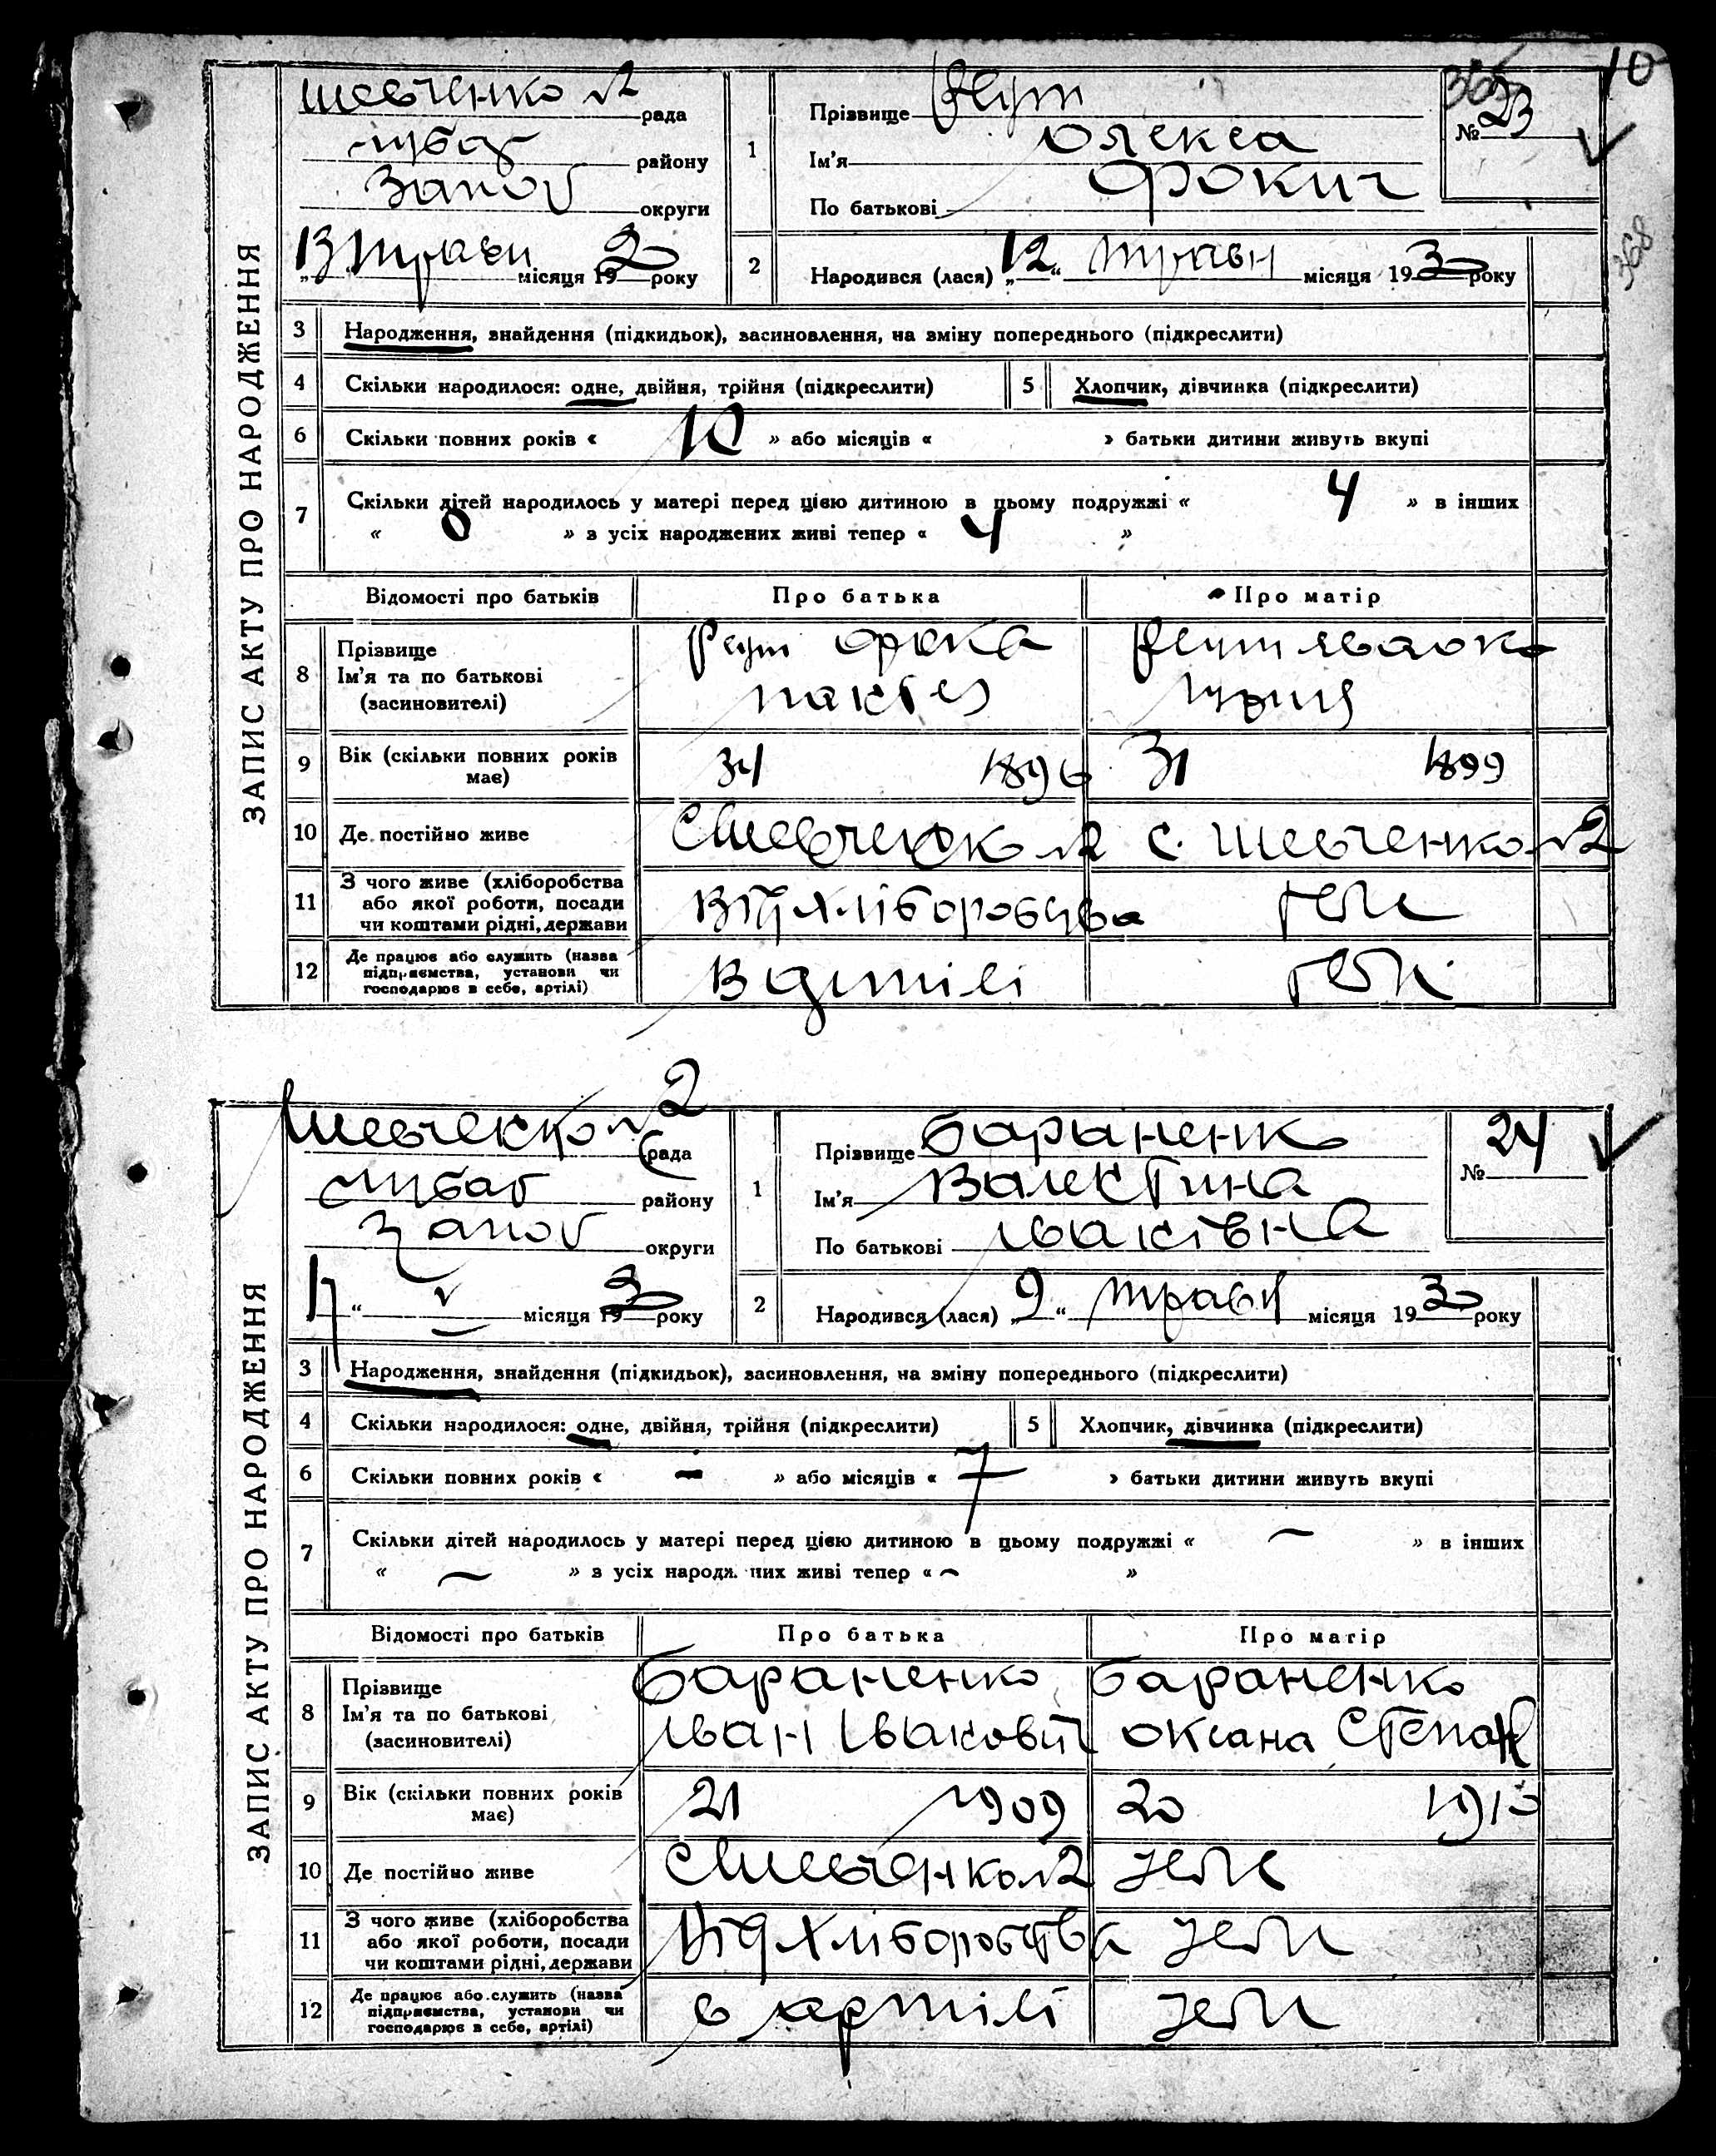 10
365
ЗАПИС АКТУ ПРО НАРОДЖЕННЯ
Шевченко №2 рада
району
Запов округи
„13 травн місяця 19 року
1 Прізвище Реут
Ім'я Олекса
По батькові Фокич
№ 23
368
2 Народився (лася) „12“ травн місяця 1930 року
3 Народження, знайдення (підкидьок), засиновлення, на зміну попереднього (підкреслити)
4 Скільки народилося: одне, двійня, трійня (підкреслити) 5 Хлопчик, дівчинка (підкреслити)
6 Скільки повних років « 10 » або місяців « » батьки дитини живуть вкупі
7 Скільки дітей народилось у матері перед цією дитиною в цьому подружжі « 4 » в інших
« 0 » з усіх народжених живі тепер « 4 »
Відомості про батьків Про батька Про матір
8 Прізвище
Ім'я та по батькові
(засновителі)
Реут Фока
Реут
9 Вік (скільки повних років має) 34 1896 31 1899
10 Де постійно живе С Шевченко №2 с. Шевченко №2
11 З чого живе (хліборобства або якої роботи, посади чи коштами рідні, держави Від хліборобства
12 Де працює або служить (назва підприємства, установи чи господарює в себе, артілі) В артілі
ЗАПИС АКТУ ПРО НАРОДЖЕННЯ
Шевченко №2 рада
району
Запов округи
“ V місяця 1930 року
1 Прізвище Бараненко
Ім'я Валентина
По батькові Іванівна
№ 24
2 Народився (лася) „9“ травн місяця 1930 року
3 Народження, знайдення (підкидьок), засиновлення, на зміну попереднього (підкреслити)
4 Скільки народилося: одне, двійня, трійня (підкреслити) 5 Хлопчик, дівчинка (підкреслити)
6 Скільки повних років « – » або місяців « 7 » батьки дитини живуть вкупі
7 Скільки дітей народилось у матері перед цією дитиною в цьому подружжі « – » в інших
« – » з усіх народжених живі тепер « – »
Відомості про батьків Про батька Про матір
8 Прізвище
Ім'я та по батькові
(засиновителі)
Бараненко Бараненко
Іван Іванович Оксана Степан
9 Вік (скільки повних років має) 21 1909 20 1910
10 Де постійно живе С Шевченко №2
11 З чого живе (хліборобства або якої роботи, посади чи коштами рідні, держави Від хліборобства
12 Де працює або служить (назва підприємства, установи чи господарює в себе, артілі) в артілі